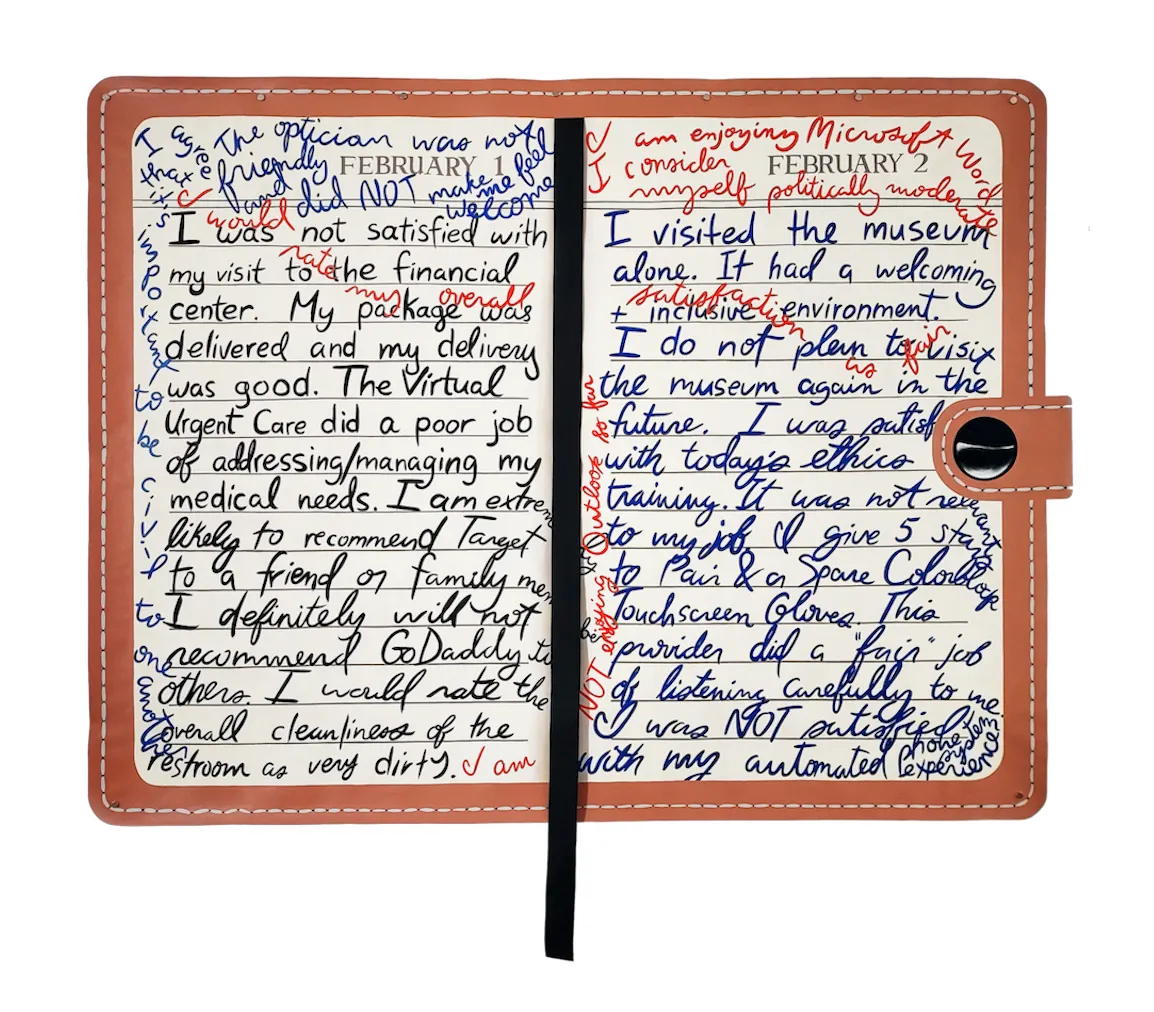 The optician was not
friendly
and did NOT make me feel
welcome
FEBRUARY 1
I agree
that it's
important
to
be
civil
to
one
another
I was not satisfied with
my visit to the financial
center. My package was
delivered and my delivery
was good. The Virtual
Urgent Care did a poor job
of addressing/managing my
medical needs. I am extrem
likely to recommend Target
to a friend or family mem
ber
I definitely will not
recommend GoDaddy to
others. I would rate the
overall cleanliness of the
restroom as very dirty.
I would
rate
my overall
satisfaction
as fair
I am
NOT enjoying Outlook so far
I am enjoying Microsoft Word
I consider
myself politically moderate
FEBRUARY 2
I visited the museum
alone. It had a welcoming
+ inclusive environment.
I do not plan to visit
the museum again in the
future. I was satisf
with today's ethics
training. It was not relevant
to my job. I give 5 stars
to Pair & a Spare Colorblock
Touchscreen Gloves. This
provider did a "fair" job
of listening carefully to me.
I was NOT satisfied
with my automated phone system experience.